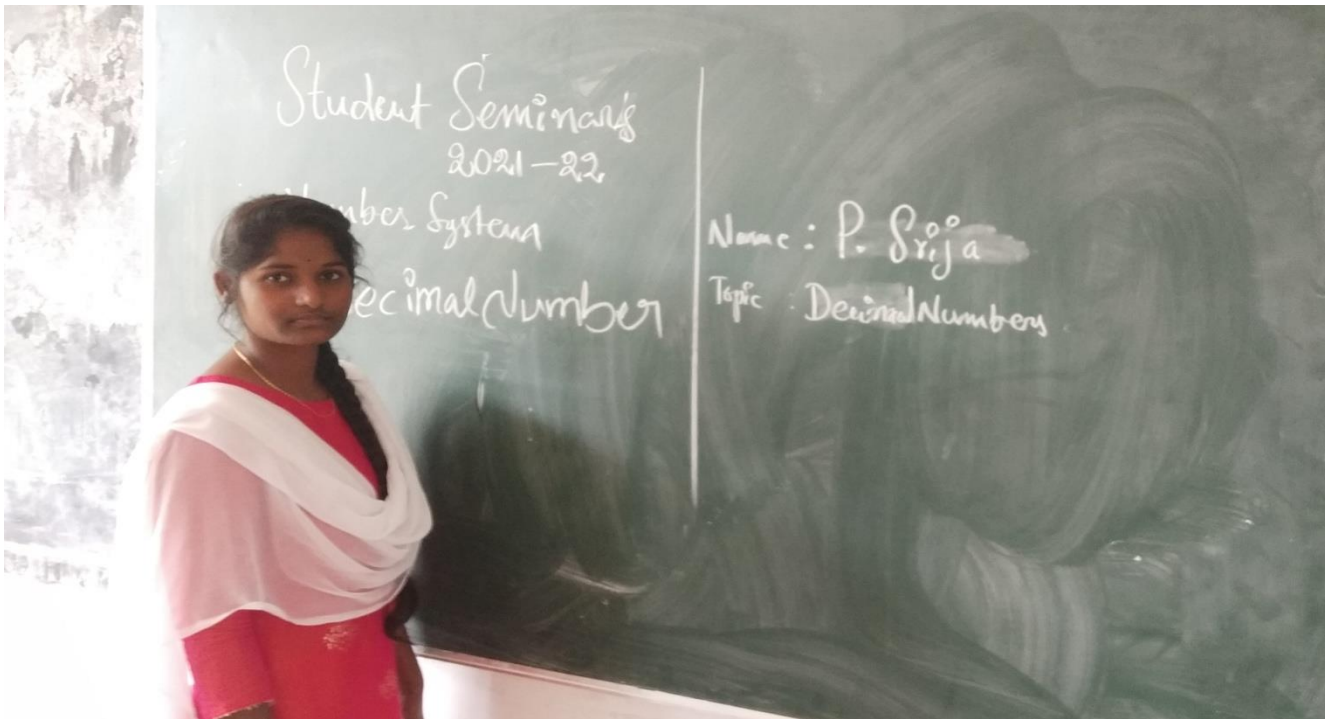 Student Seminars
2021-22
Number System
Decimal Number
Name : P. Srija
Topic : Decimal Numbers